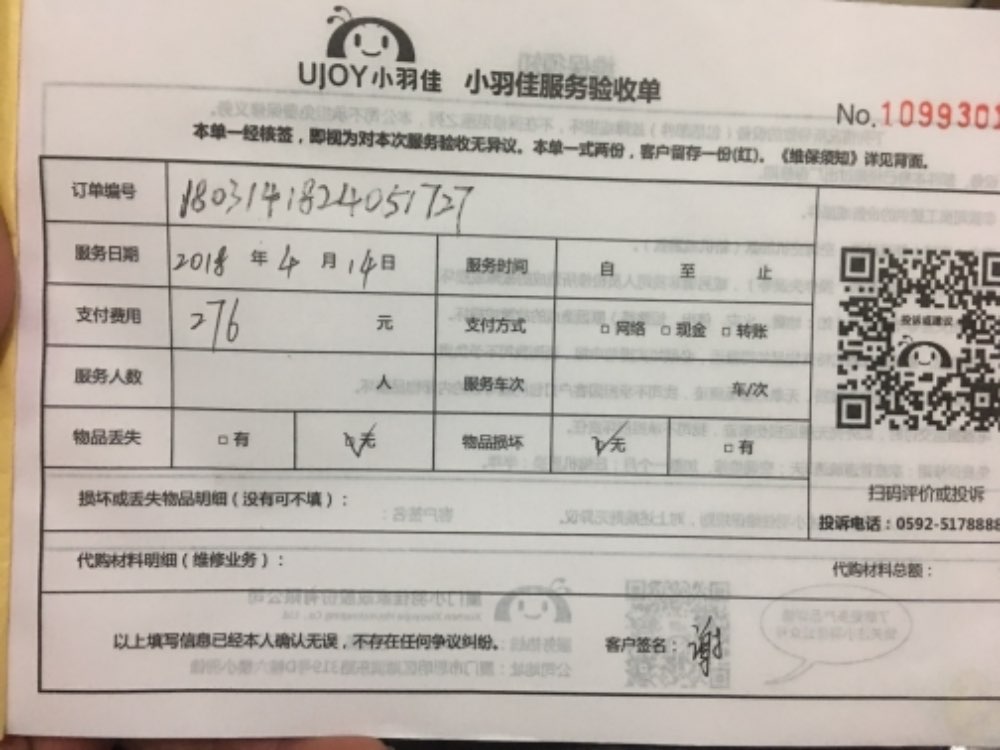 UJOY小羽佳 小羽佳服务验收单
No.1099301
本单一经核签，即视为对本次服务验收无异议。本单一式两份，客户留存一份(红)。《维保须知》详见背面。
订单编号 1803141824051727
服务日期 2018 年 4 月 14 日 服务时间 自 至 止
支付费用 276 元 支付方式 □网络 □现金 □转账
服务人数 人 服务车次 车/次
物品丢失 □有 ☑无 物品损坏 ☑无 □有
投诉或建议
扫码评价或投诉
投诉电话：0592-5178888
损坏或丢失物品明细（没有可不填）：
代购材料明细（维修业务）： 代购材料总额：
以上填写信息已经本人确认无误，不存在任何争议纠纷。 客户签名：谢